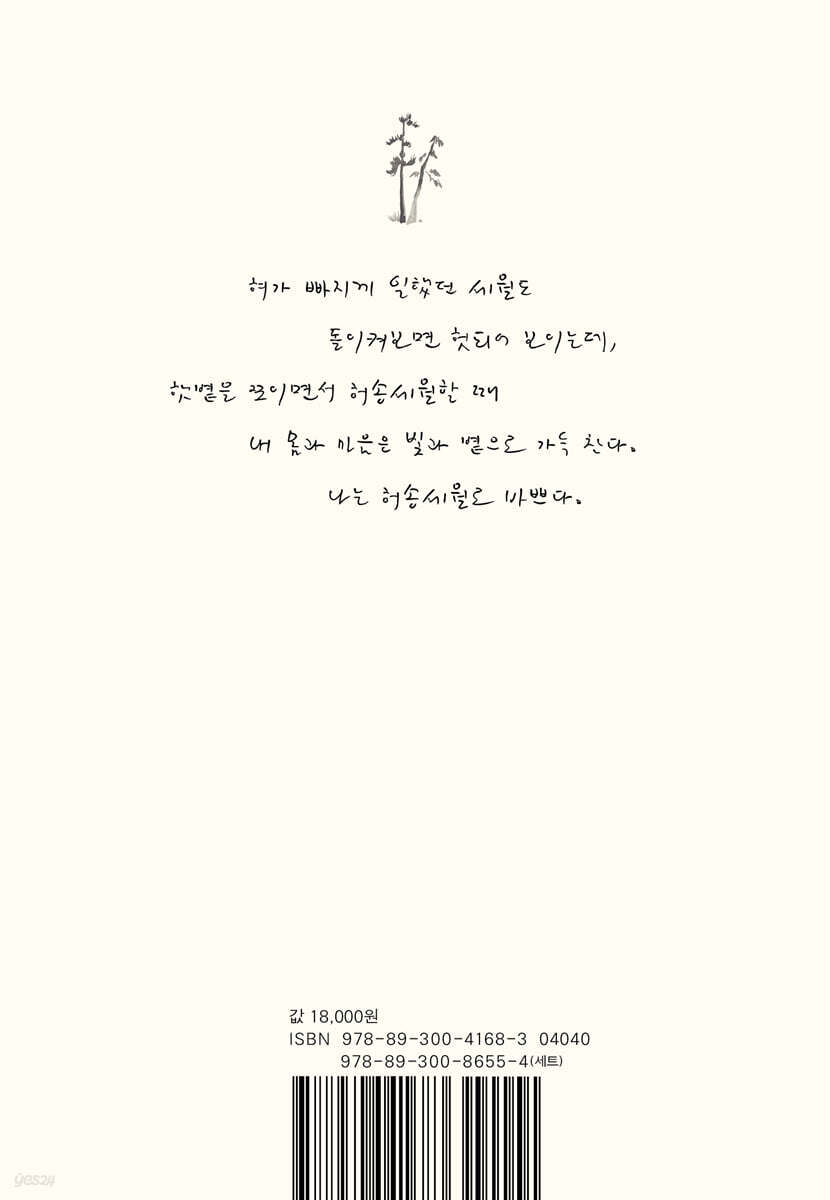 혀가 빠지게 일했던 세월도
돌이켜보면 헛되어 보이는데,
햇볕을 쪼이면서 허송세월할 때
내 몸과 마음은 빛과 볕으로 가득 찬다.
나는 허송세월로 바쁘다.
값 18,000원
ISBN 978-89-300-4168-3 04040
978-89-300-8655-4(세트)
yes24